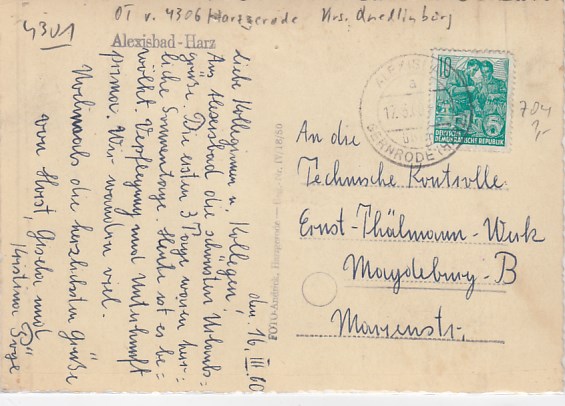 4301
OT v. 4306 Harzgerode Krs. Quedlinburg
Alexisbad-Harz
den 16. III. 60
Liebe Kolleginnen u. Kollegen,
Aus Alexisbad die schönsten Urlaubs=
grüße. Die ersten 3 Tage waren herr=
liche Sonnentage. Heute ist es be=
wölkt. Verpflegung und Unterkunft
prima. Wir wandern viel.
Nochmals die herzlichsten Grüße
von Horst, Gisela und
Kristina
FOTO-Andrack, Harzgerode — IV/18/60
ALEXISBAD
a
BERNRODE
10
DEUTSCHE
DEMOKRATISCHE REPUBLIK
704
An die
Technische Kontrolle
Ernst-Thälmann-Werk
Magdeburg-B
Marienstr.